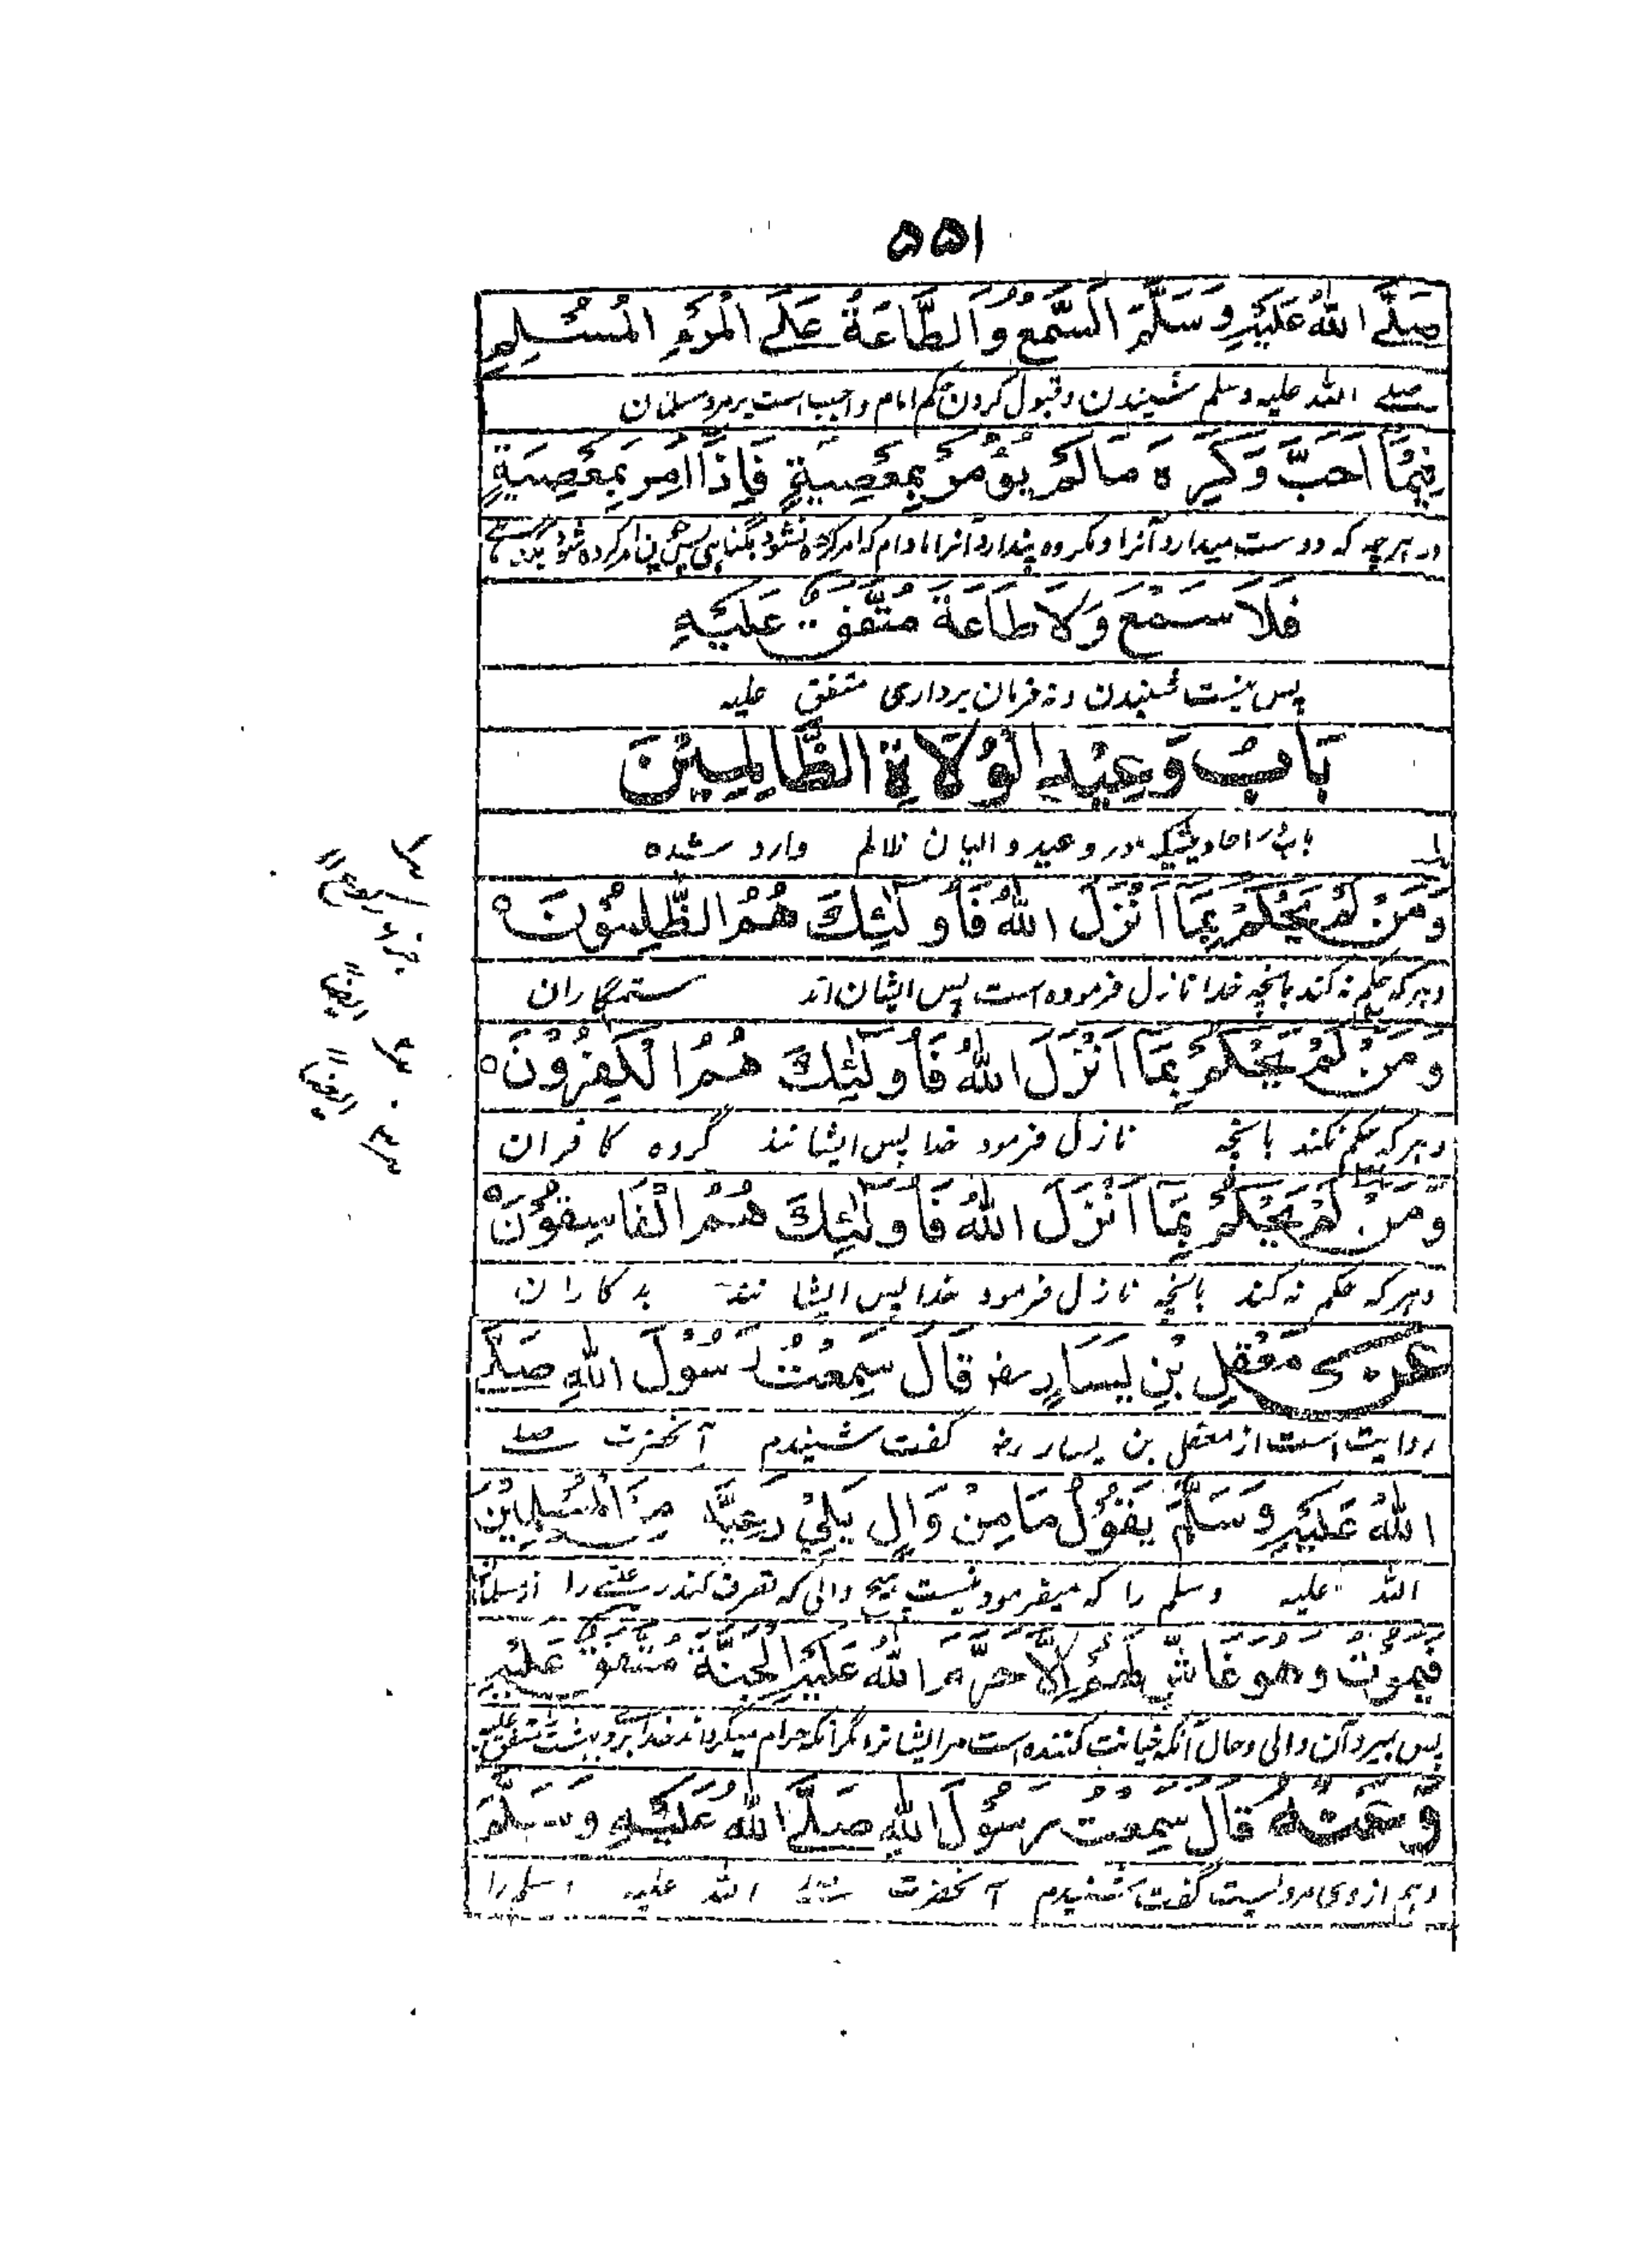 ۵۵۱
صَلَّے اللهُ عَلَيْهِ وَسَلَّمَ السَّمْعُ وَالطَّاعَةُ عَلَے الْمَرْءِ الْمُسْلِمِ
صلے اللہ علیہ وسلم شنیدن و قبول کردن حکم امام واجب است بر مرد مسلمان
فِيْمَا اَحَبَّ وَكَرِهَ مَا لَمْ يُؤْمَرْ بِمَعْصِيَةٍ فَاِذَا اُمِرَ بِمَعْصِيَةٍ
در ہر چہ کہ دوست میدارد آنرا و مکروہ پندارد آنرا مادام کہ امر کردہ نشود بگناہی پس چون امر کردہ شود
فَلَا سَمْعَ وَلَا طَاعَةَ مُتَّفَقٌ عَلَيْهِ
پس نیست شنیدن و نہ فرمان برداری متفق علیہ
بَابُ وَعِيْدِ الْوُلَاةِ الظَّالِمِيْنَ
باب احادیثیکہ در وعید والیان ظالم وارد شدہ
وَمَنْ لَمْ يَحْكُمْ بِمَا اَنْزَلَ اللهُ فَاُولٰئِكَ هُمُ الظّٰلِمُوْنَ
و ہر کہ حکم نہ کند بانچہ خدا نازل فرمودہ است پس ایشان اند ستمگاران
وَمَنْ لَمْ يَحْكُمْ بِمَا اَنْزَلَ اللهُ فَاُولٰئِكَ هُمُ الْكٰفِرُوْنَ
و ہر کہ حکم نکند بانچہ نازل فرمود خدا پس ایشانند گروہ کافران
وَمَنْ لَمْ يَحْكُمْ بِمَا اَنْزَلَ اللهُ فَاُولٰئِكَ هُمُ الْفَاسِقُوْنَ
و ہر کہ حکم نہ کند بانچہ نازل فرمود خدا پس ایشانند بدکاران
عَنْ مَعْقِلِ بْنِ يَسَارٍ رضہ قَالَ سَمِعْتُ رَسُوْلَ اللهِ صَلَّے
روایت است از معقل بن یسار رضہ گفت شنیدم آنحضرت صلے
اللهُ عَلَيْهِ وَسَلَّمَ يَقُوْلُ مَا مِنْ وَالٍ يَلِيْ رَعِيَّةً مِنَ الْمُسْلِمِيْنَ
اللہ علیہ وسلم را کہ میفرمود نیست ہیچ والی کہ تصرف کند رعیتے را از مسلمانان
فَيَمُوْتُ وَهُوَ غَاشٌّ لَهُمْ اِلَّا حَرَّمَ اللهُ عَلَيْهِ الْجَنَّةَ مُتَّفَقٌ عَلَيْهِ
پس بمیرد آن والی و حال آنکہ خیانت کنندہ است مر ایشانرا مگر آنکہ حرام میگرداند خدا برو بہشت متفق علیہ
وَعَنْهُ قَالَ سَمِعْتُ رَسُوْلَ اللهِ صَلَّے اللهُ عَلَيْهِ وَسَلَّمَ
و ہم از وی مرویست گفت شنیدم آنحضرت صلے اللہ علیہ وسلم را